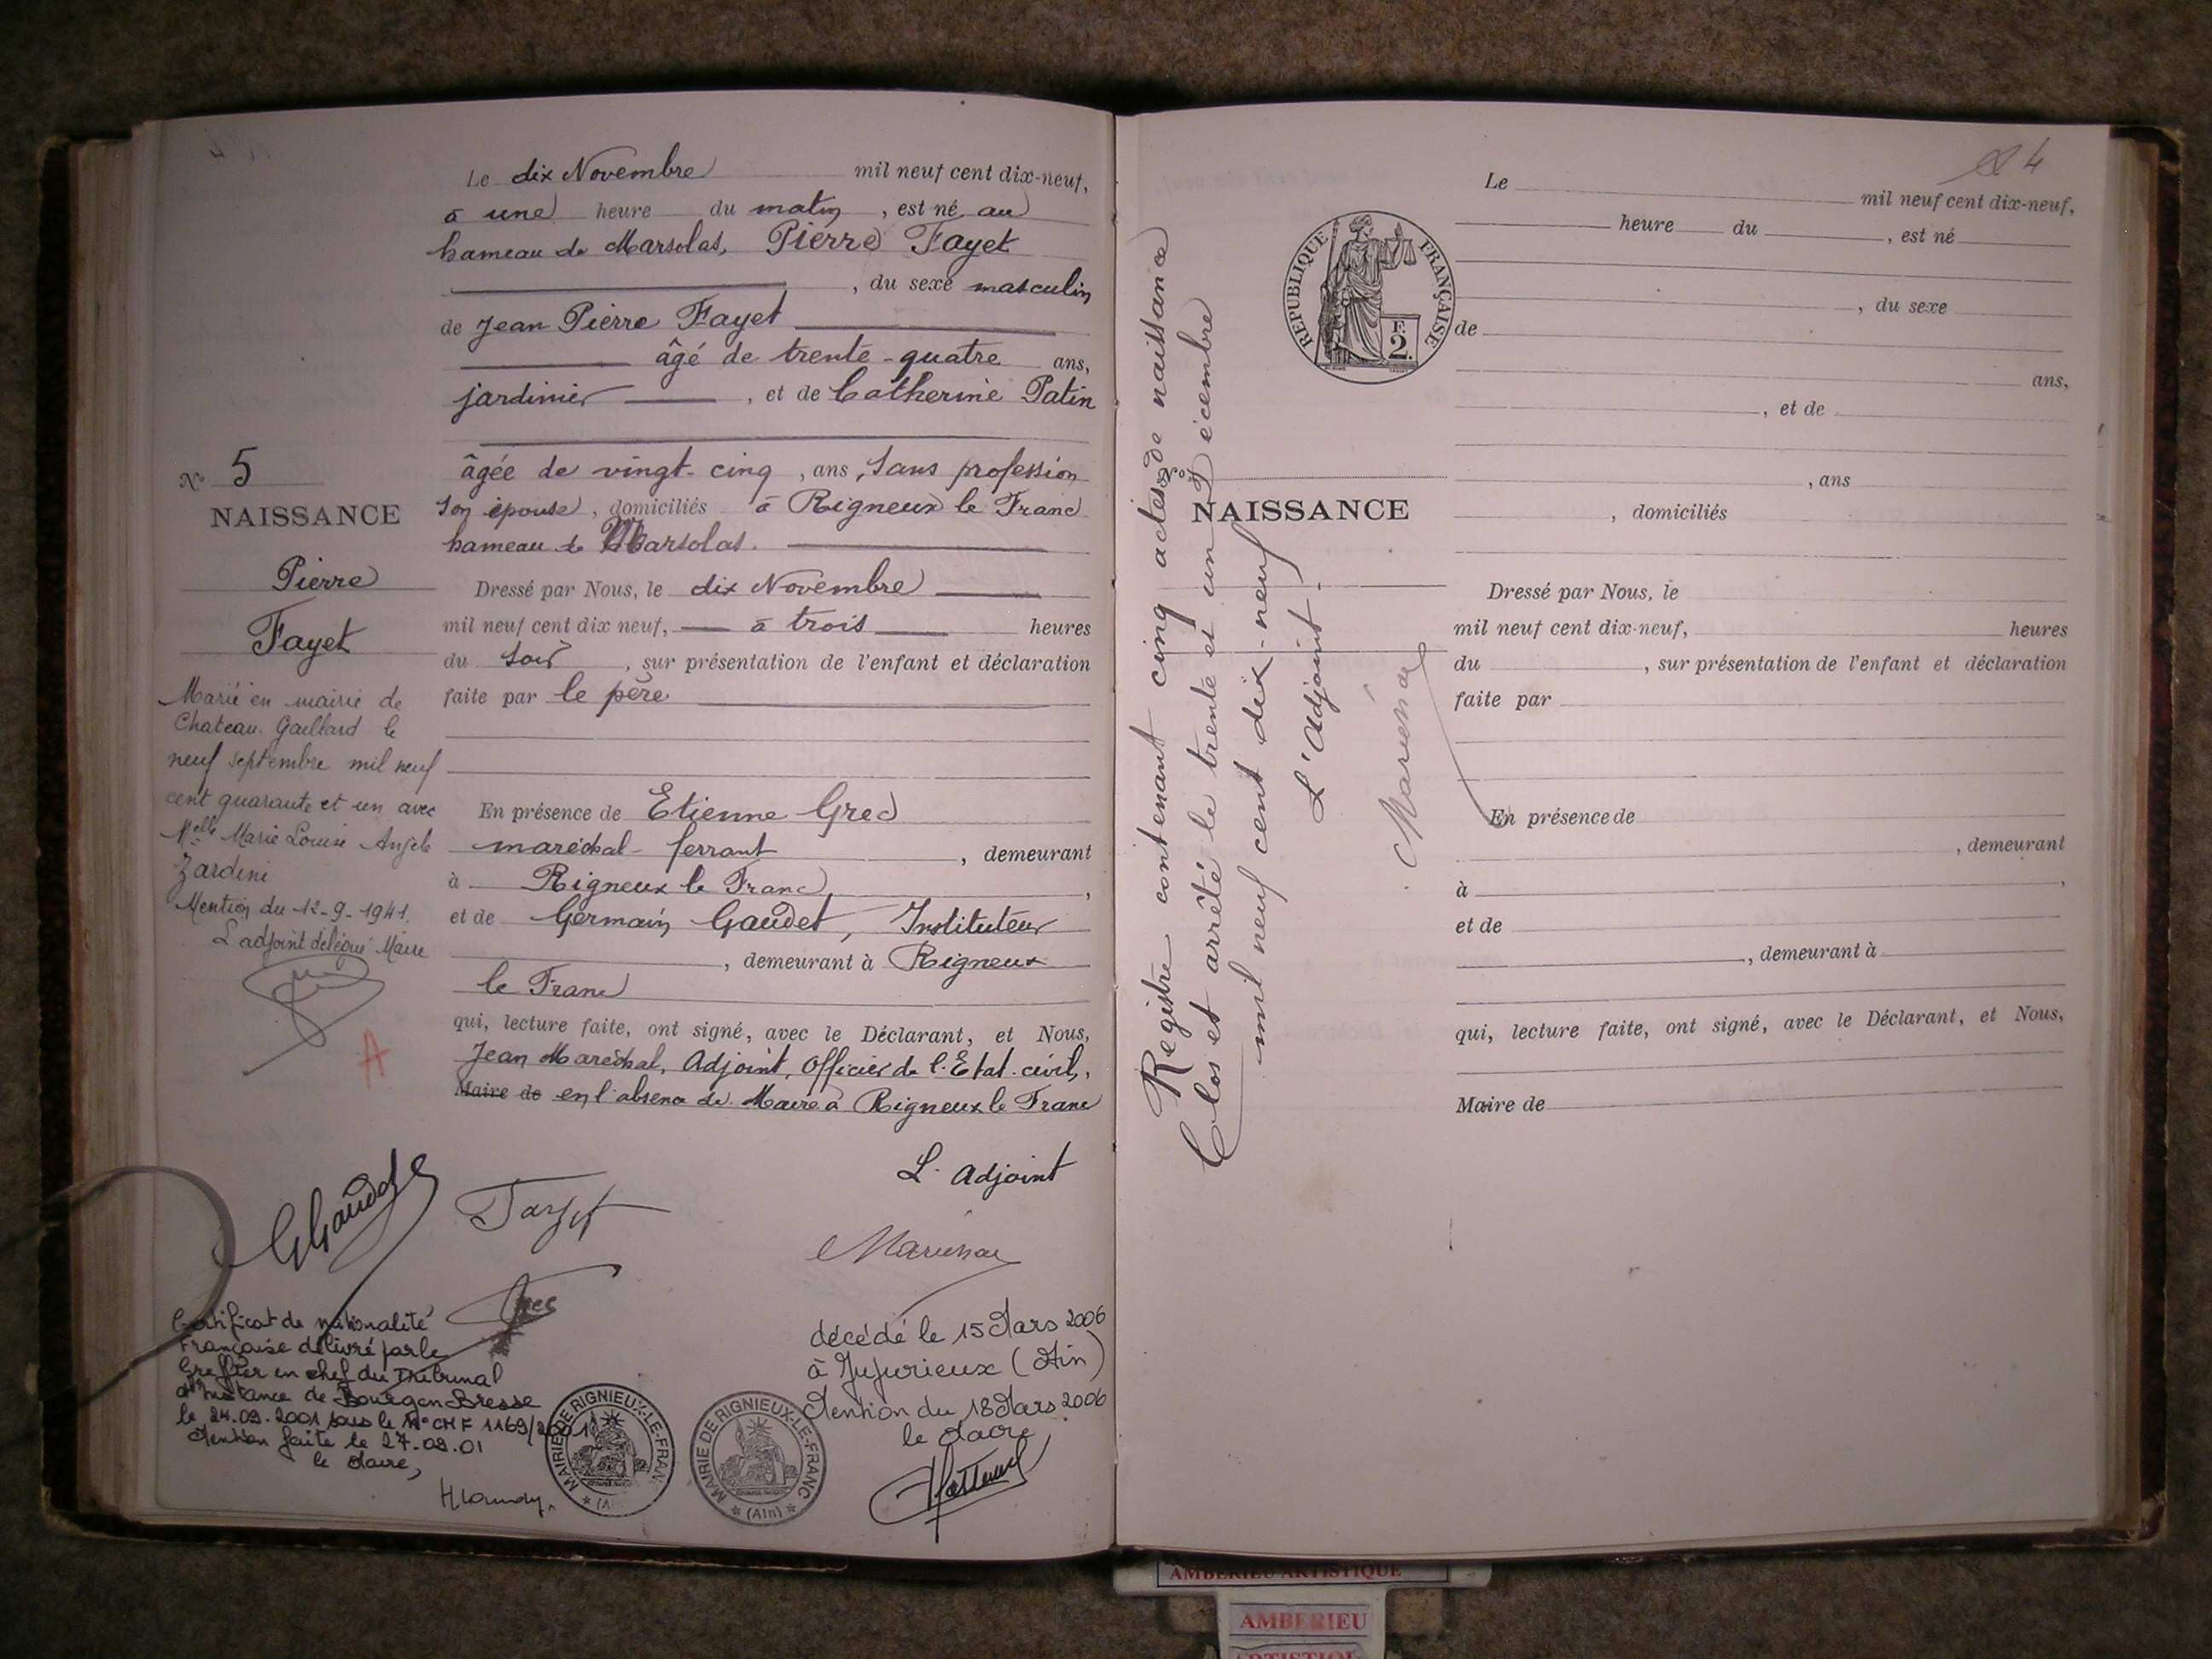 Le dix Novembre mil neuf cent dix-neuf,
à une heure du matin, est né au
hameau de Marsolas, Pierre Fayet
, du sexe masculin
de Jean Pierre Fayet
âgé de trente-quatre ans,
jardinier, et de Catherine Patin
âgée de vingt-cinq, ans, sans profession
son épouse, domiciliés à Rigneux le Franc
hameau de Marsolas.
Dressé par Nous, le dix Novembre
mil neuf cent dix neuf, à trois heures
du soir, sur présentation de l'enfant et déclaration
faite par le père
En présence de Etienne Grec
maréchal-ferrant, demeurant
à Rigneux le Franc,
et de Germain Gaudet, Instituteur
, demeurant à Rigneux
le Franc
qui, lecture faite, ont signé, avec le Déclarant, et Nous,
Jean Maréchal, Adjoint, Officier de l'Etat-civil,
Maire de en l'absence du Maire à Rigneux le Franc
L'adjoint
Maréchal
GGaudet
Fayet
Grec
N° 5
NAISSANCE
Pierre
Fayet
Marié en mairie de
Chateau-Gaillard le
neuf septembre mil neuf
cent quarante et un avec
Melle Marie Louise Angèle
Zardini
Mention du 12-9-1941.
L'adjoint délégué Maire
A
Certificat de nationalité
Française délivré par le
Greffier en chef du Tribunal
d'Instance de Bourg en Bresse
le 24.09.2001 sous le N° CMF 1169/2001
Mention faite le 27.09.01
le Maire,
MAIRIE DE RIGNIEUX-LE-FRANC
(Ain)
MAIRIE DE RIGNIEUX-LE-FRANC
(Ain)
décédé le 15 Mars 2006
à Jujurieux (Ain)
Mention du 18 Mars 2006
le Maire
4
REPUBLIQUE FRANÇAISE
F.
2.
Registre contenant cinq actes de naissance
Clos et arrêté le trente et un Décembre
mil neuf cent dix-neuf
L'Adjoint
Maréchal
N°
NAISSANCE
Le mil neuf cent dix-neuf,
heure du , est né
, du sexe
de
ans,
, et de
, ans
, domiciliés
Dressé par Nous, le
mil neuf cent dix-neuf, heures
du , sur présentation de l'enfant et déclaration
faite par
En présence de
, demeurant
à ,
et de
, demeurant à
qui, lecture faite, ont signé, avec le Déclarant, et Nous,
Maire de
AMBERIEU ARTISTIQUE
AMBERIEU
ARTISTIQUE